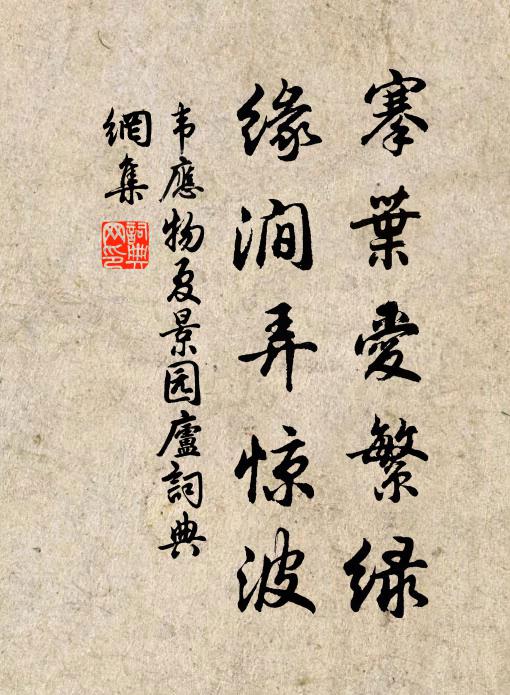 搴葉愛繁绿
缘澗弄惊波
韦應物夏景园廬詞典
網集
詞典
网印